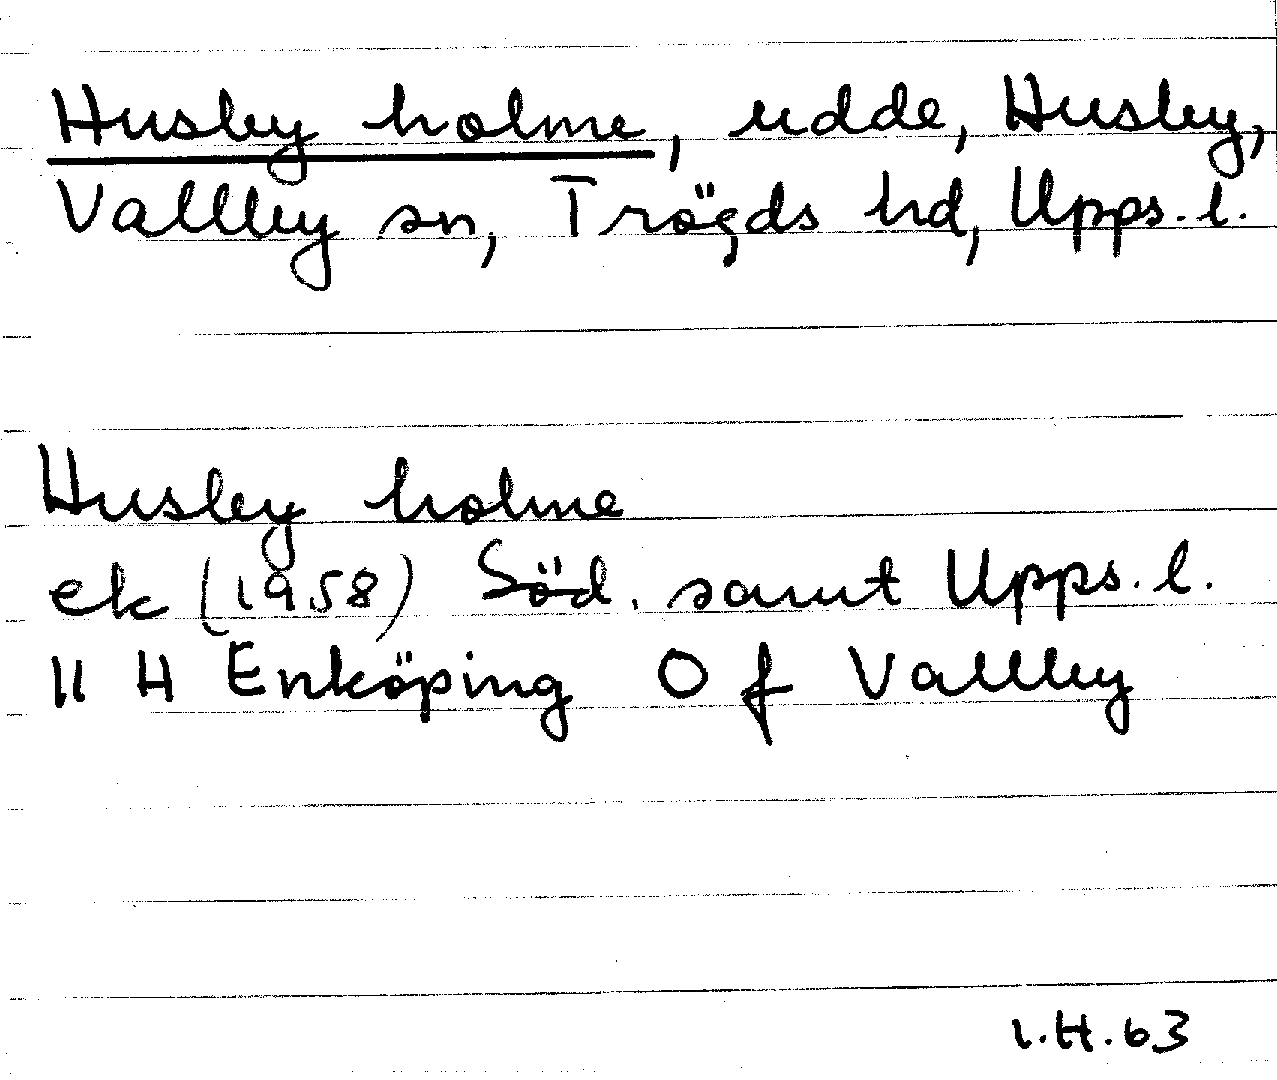 Husby holme, udde, Husby,
Vallby sn, Trögds hd, Upps. l.
Husby holme
ek (1958) Söd. samt Upps. l.
11 H Enköping O f Vallby
I.H.63